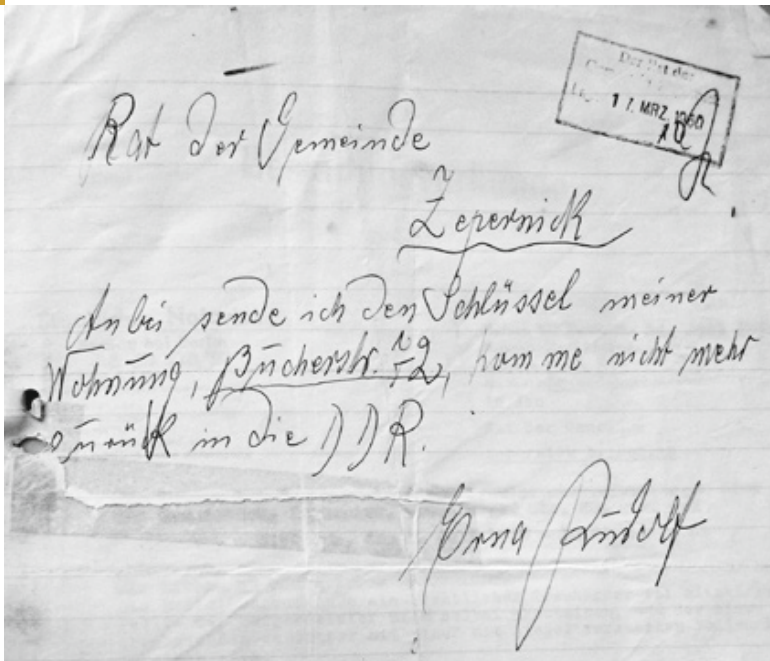 Der Rat der
17. MRZ. 1960
Rat der Gemeinde
Zepernick
Anbei sende ich den Schlüssel meiner
Wohnung, Bucherstr. 52, komme nicht mehr
zurück in die DDR.
Erna Rudolf